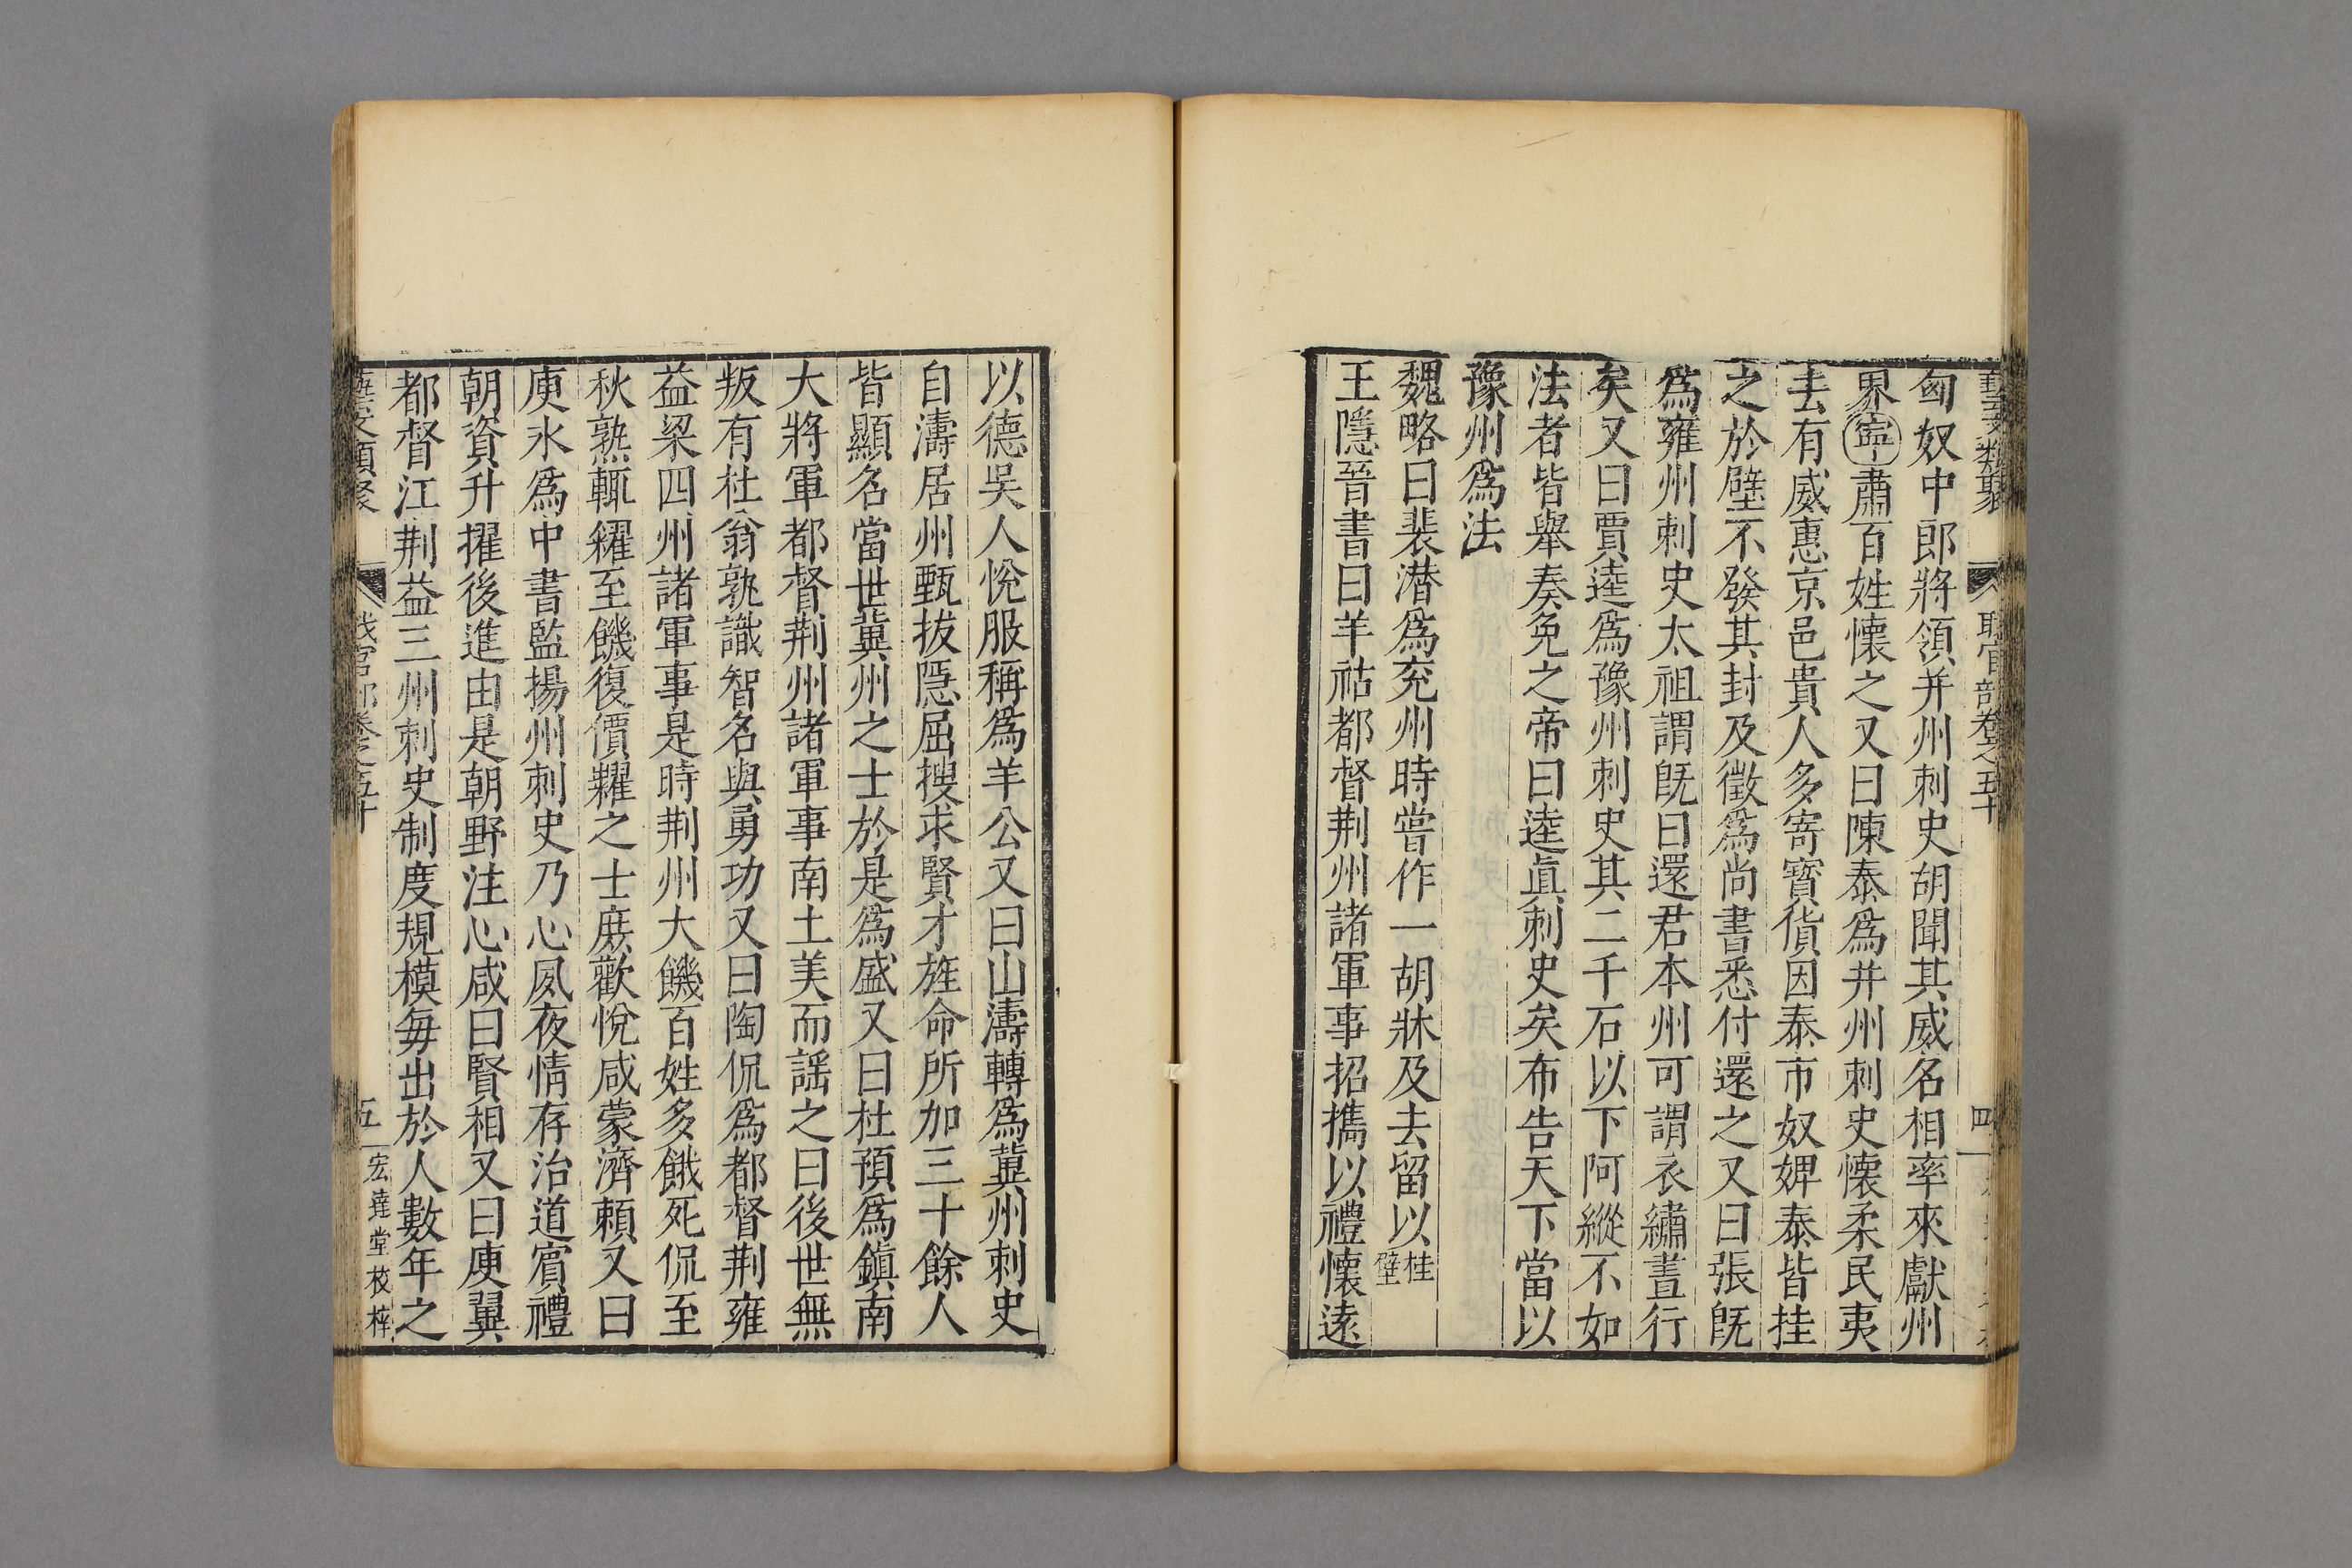 藝文類聚 職官部卷之五十 四
匈奴中郎將領并州刺史胡聞其威名相率來獻州
界寧肅百姓懷之又曰陳泰爲并州刺史懷柔民夷
去有威惠京邑貴人多寄寳貨因泰市奴婢泰皆挂
之於壁不發其封及徵爲尚書悉付還之又曰張旣
爲雍州刺史太祖謂旣曰還君本州可謂衣繡晝行
矣又曰賈逵爲豫州刺史其二千石以下阿縱不如
法者皆舉奏免之帝曰逵眞刺史矣布告天下當以
豫州爲法
魏略曰裴潜爲兖州時嘗作一胡牀及去留以桂壁
王隱晉書曰羊祜都督荆州諸軍事招携以禮懷遠
以德吳人悅服稱爲羊公又曰山濤轉爲冀州刺史
自濤居州甄拔隱屈搜求賢才旌命所加三十餘人
皆顯名當世冀州之士於是爲盛又曰杜預爲鎮南
大將軍都督荆州諸軍事南土美而謡之曰後世無
叛有杜翁孰識智名與勇功又曰陶侃爲都督荆雍
益梁四州諸軍事是時荆州大饑百姓多餓死侃至
秋熟輒糴至饑復價糶之士庶歡悅咸蒙濟賴又曰
庾氷爲中書監揚州刺史乃心夙夜情存治道賔禮
朝資升擢後進由是朝野注心咸曰賢相又曰庾翼
都督江荆益三州刺史制度規模每出於人數年之
藝文類聚 職官部卷之五十 五 宏達堂校梓